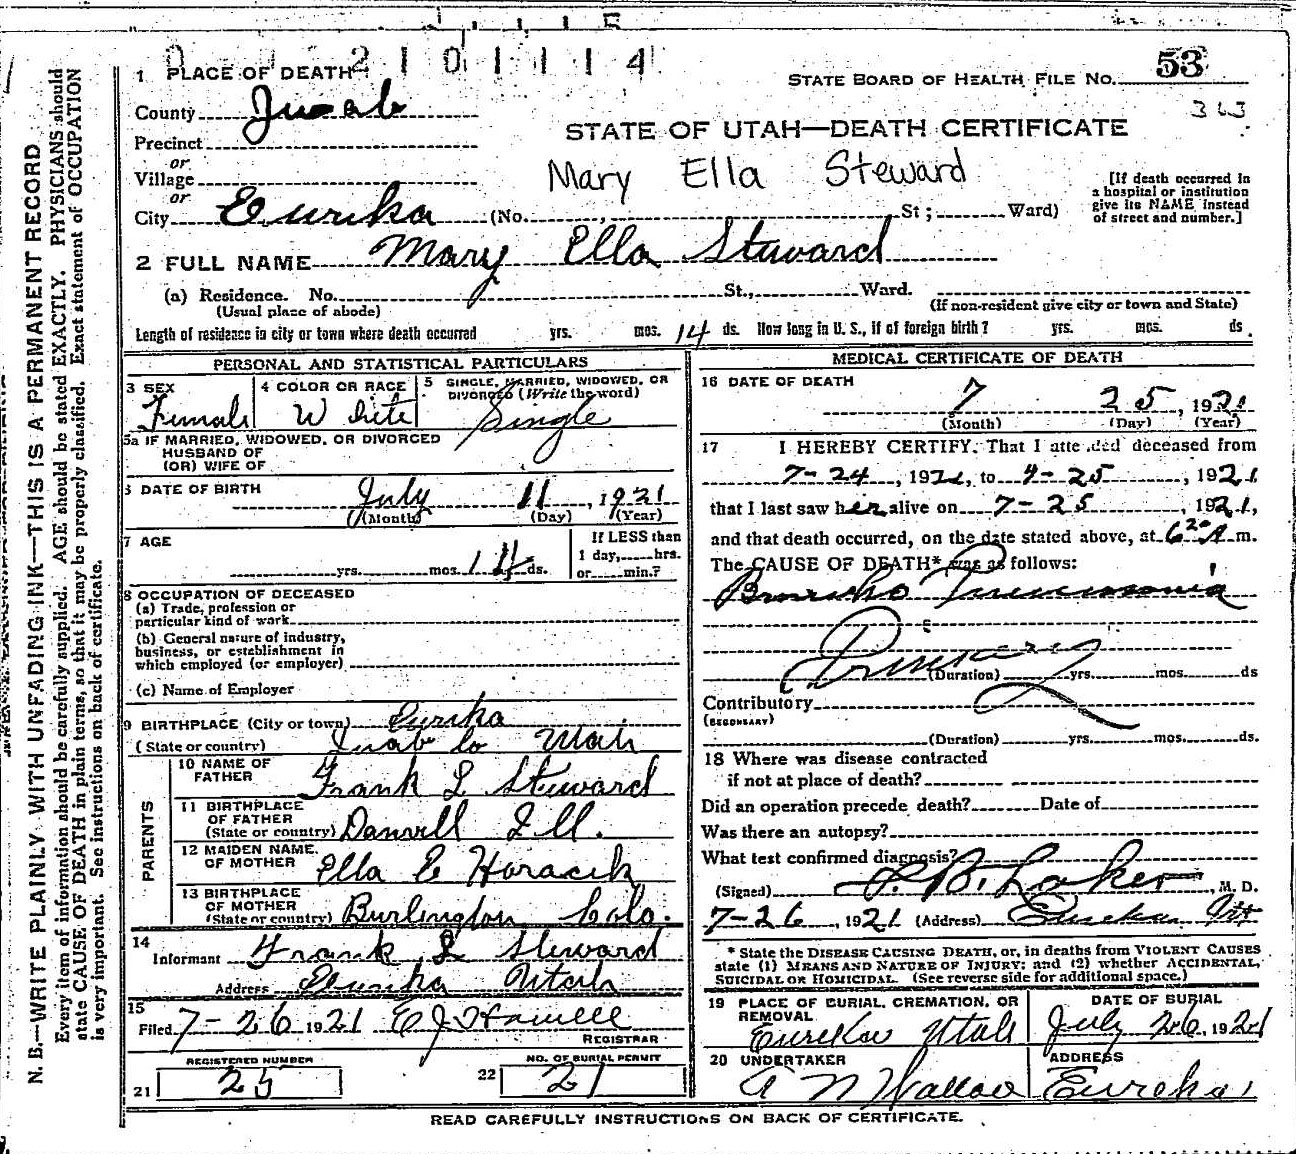 2 1 0 1 1 1 4
53
1 PLACE OF DEATH
STATE BOARD OF HEALTH FILE NO.
County Juab
363
STATE OF UTAH—DEATH CERTIFICATE
Precinct
or
Village
Mary Ella Steward
[If death occurred in a hospital or institution give its NAME instead of street and number.]
or
City Eureka (No. , St; Ward)
2 FULL NAME Mary Ella Steward
(a) Residence. No. St., Ward.
(Usual place of abode) (If non-resident give city or town and State)
Length of residence in city or town where death occurred yrs. mos. 14 ds. How long in U. S., if of foreign birth? yrs. mos. ds.
PERSONAL AND STATISTICAL PARTICULARS
3 SEX Female
4 COLOR OR RACE White
5 SINGLE, MARRIED, WIDOWED, OR DIVORCED (Write the word) Single
5a IF MARRIED, WIDOWED, OR DIVORCED
HUSBAND OF
(OR) WIFE OF
6 DATE OF BIRTH July 11, 1921
(Month) (Day) (Year)
7 AGE yrs. mos. 14 ds.
If LESS than 1 day, hrs. or min.?
8 OCCUPATION OF DECEASED
(a) Trade, profession or
particular kind of work
(b) General nature of industry,
business, or establishment in
which employed (or employer)
(c) Name of Employer
9 BIRTHPLACE (City or town) Eureka
(State or country) Juab Co Utah
PARENTS
10 NAME OF FATHER Frank L Steward
11 BIRTHPLACE OF FATHER (State or country) Danvill Ill.
12 MAIDEN NAME OF MOTHER Ella E Horacik
13 BIRTHPLACE OF MOTHER (State or country) Burlington Colo.
14 Informant Frank L Steward
Address Eureka Utah
15 Filed 7-26 1921 E J Howell
REGISTRAR
REGISTERED NUMBER
21 25
NO. OF BURIAL PERMIT
22 21
MEDICAL CERTIFICATE OF DEATH
16 DATE OF DEATH
7 25, 1921
(Month) (Day) (Year)
17 I HEREBY CERTIFY, That I attended deceased from
7-24, 1921, to 4-25, 1921
that I last saw her alive on 7-25, 1921,
and that death occurred, on the date stated above, at 6 20 A m.
The CAUSE OF DEATH* was as follows:
Broncho Pneumonia
Primary
(Duration) yrs. mos. ds
Contributory
(SECONDARY)
(Duration) yrs. mos. ds.
18 Where was disease contracted
if not at place of death?
Did an operation precede death? Date of
Was there an autopsy?
What test confirmed diagnosis?
(Signed) B. Laker, M. D.
7-26, 1921 (Address) Eureka Ut
* State the DISEASE CAUSING DEATH, or, in deaths from VIOLENT CAUSES
state (1) MEANS AND NATURE OF INJURY; and (2) whether ACCIDENTAL,
SUICIDAL OR HOMICIDAL. (See reverse side for additional space.)
19 PLACE OF BURIAL, CREMATION, OR REMOVAL Eureka Utah
DATE OF BURIAL July 26, 1921
20 UNDERTAKER A N Wallace
ADDRESS Eureka
READ CAREFULLY INSTRUCTIONS ON BACK OF CERTIFICATE.
N. B.—WRITE PLAINLY WITH UNFADING INK—THIS IS A PERMANENT RECORD
Every item of information should be carefully supplied. AGE should be stated EXACTLY. PHYSICIANS should
state CAUSE OF DEATH in plain terms, so that it may be properly classified. Exact statement of OCCUPATION
is very important. See instructions on back of certificate.